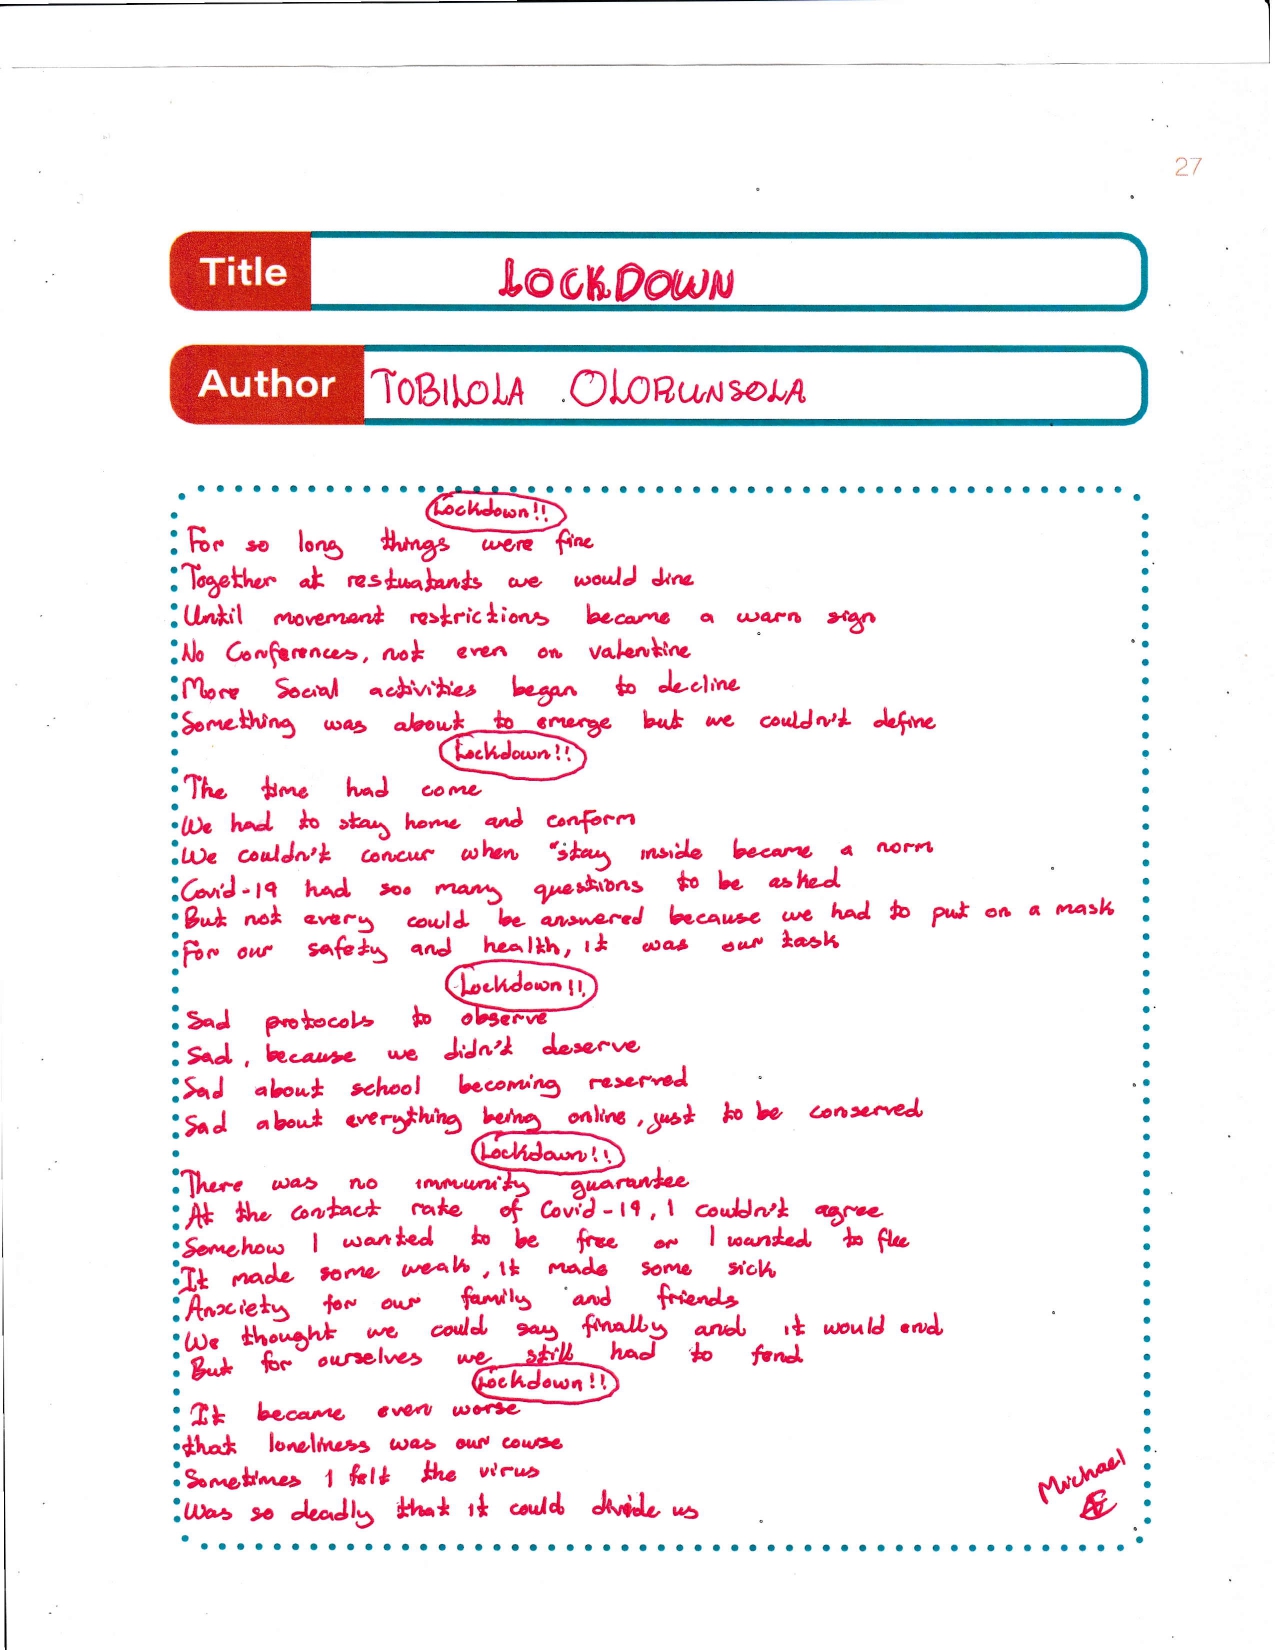 27
Title LOCKDOWN
Author TOBILOLA OLORUNSOLA
Lockdown!!
For so long things were fine
Together at restuatants we would dine
Until movement restrictions became a warn sign
No Conferences, not even on valentine
More Social activities began to decline
Something was about to emerge but we couldn't define
Lockdown!!
The time had come
We had to stay home and conform
We couldn't concur when "stay inside became a norm
Covid-19 had soo many questions to be asked
But not every could be answered because we had to put on a mask
For our safety and health, it was our task
Lockdown!!
Sad protocols to observe
Sad, because we didn't deserve
Sad about school becoming reserved
Sad about everything being online, just to be conserved
Lockdown!!
There was no immunity guarantee
At the contact rate of Covid-19, I couldn't agree
Somehow I wanted to be free or I wanted to flee
It made some weak, it made some sick
Anxciety for our family and friends
We thought we could say finally and it would end
But for ourselves we still had to fend
Lockdown!!
It became even worse
that loneliness was our course
Sometimes I felt the virus
Was so deadly that it could divide us
Michael